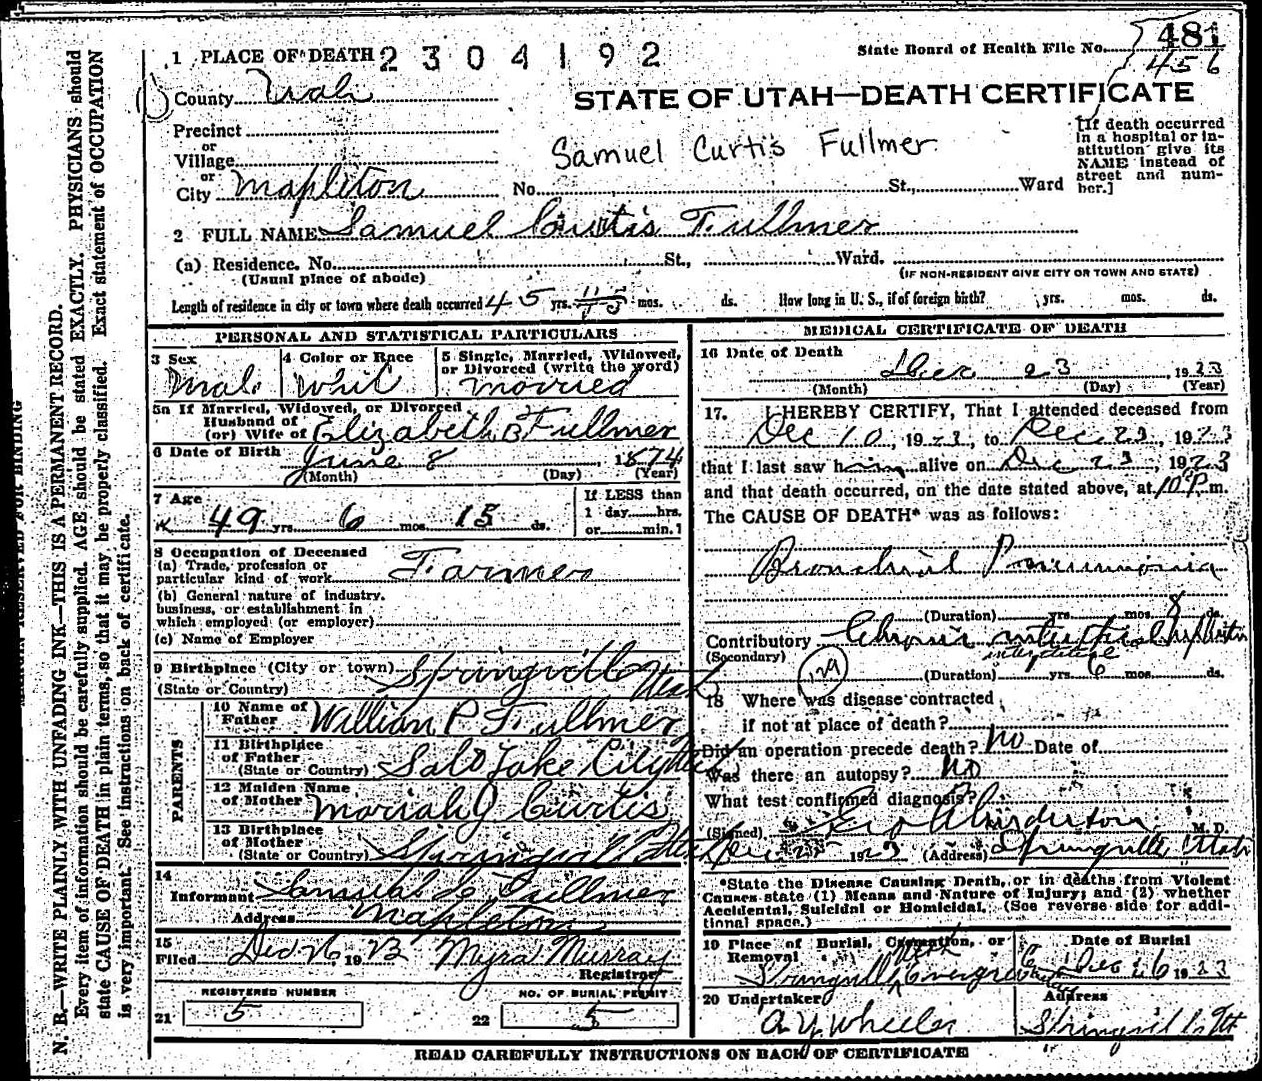 481
State Board of Health File No.
456
1 PLACE OF DEATH 2304192
County Utah
STATE OF UTAH—DEATH CERTIFICATE
Precinct
or
Village
or
City Mapleton No. St., Ward
Samuel Curtis Fullmer
[If death occurred in a hospital or institution give its NAME instead of street and number.]
2 FULL NAME Samuel Curtis Fullmer
(a) Residence. No. St., Ward.
(Usual place of abode) (IF NON-RESIDENT GIVE CITY OR TOWN AND STATE)
Length of residence in city or town where death occurred 45 yrs. mos. ds. How long in U. S., if of foreign birth? yrs. mos. ds.
PERSONAL AND STATISTICAL PARTICULARS
3 Sex 4 Color or Race 5 Single, Married, Widowed, or Divorced (write the word)
Mal. Whit married
5a If Married, Widowed, or Divorced
Husband of
(or) Wife of Elizabeth B Fullmer
6 Date of Birth June 8, 1874
(Month) (Day) (Year)
7 Age
49 yrs. 6 mos. 15 ds.
If LESS than
1 day hrs.
or min.?
8 Occupation of Deceased
(a) Trade, profession or
particular kind of work Farmer
(b) General nature of industry,
business, or establishment in
which employed (or employer)
(c) Name of Employer
9 Birthplace (City or town) Springville
(State or Country) Utah
PARENTS
10 Name of
Father William P Fullmer
11 Birthplace
of Father
(State or Country) Salt Lake City Utah
12 Maiden Name
of Mother Moriah J Curtis
13 Birthplace
of Mother
(State or Country) Springville Utah
14
Informant Samuel C Fullmer
Address Mapleton
15
Filed Dec 26 1923 Myra Murray
Registrar
REGISTERED NUMBER NO. OF BURIAL PERMIT
21 5 22 5
MEDICAL CERTIFICATE OF DEATH
16 Date of Death
Dec 23 1923
(Month) (Day) (Year)
17. I HEREBY CERTIFY, That I attended deceased from
Dec 10, 1923, to Dec 23, 1923
that I last saw him alive on Dec 23, 1923
and that death occurred, on the date stated above, at 10 P.m.
The CAUSE OF DEATH* was as follows:
Bronchial Pneumonia
(Duration) yrs. mos. 8 ds.
Contributory Chronic interstitial Nephritis
(Secondary) interstitial
129 (Duration) yrs. 6 mos. ds.
18 Where was disease contracted
if not at place of death?
Did an operation precede death? No Date of
Was there an autopsy? no
What test confirmed diagnosis?
(Signed) Geo Anderson M.D.
Dec 1923 (Address) Springville Utah
*State the Disease Causing Death, or in deaths from Violent
Causes state (1) Means and Nature of Injury; and (2) whether
Accidental, Suicidal or Homicidal. (See reverse side for additional space.)
19 Place of Burial, Cremation, or Removal Date of Burial
Springville Evergreen Dec 26 1923
20 Undertaker Address
A. Y. Wheeler Springville Ut
READ CAREFULLY INSTRUCTIONS ON BACK OF CERTIFICATE
MARGIN RESERVED FOR BINDING
N. B.—WRITE PLAINLY WITH UNFADING INK—THIS IS A PERMANENT RECORD.
Every item of information should be carefully supplied. AGE should be stated EXACTLY. PHYSICIANS should
state CAUSE OF DEATH in plain terms, so that it may be properly classified. Exact statement of OCCUPATION
is very important. See instructions on back of certificate.